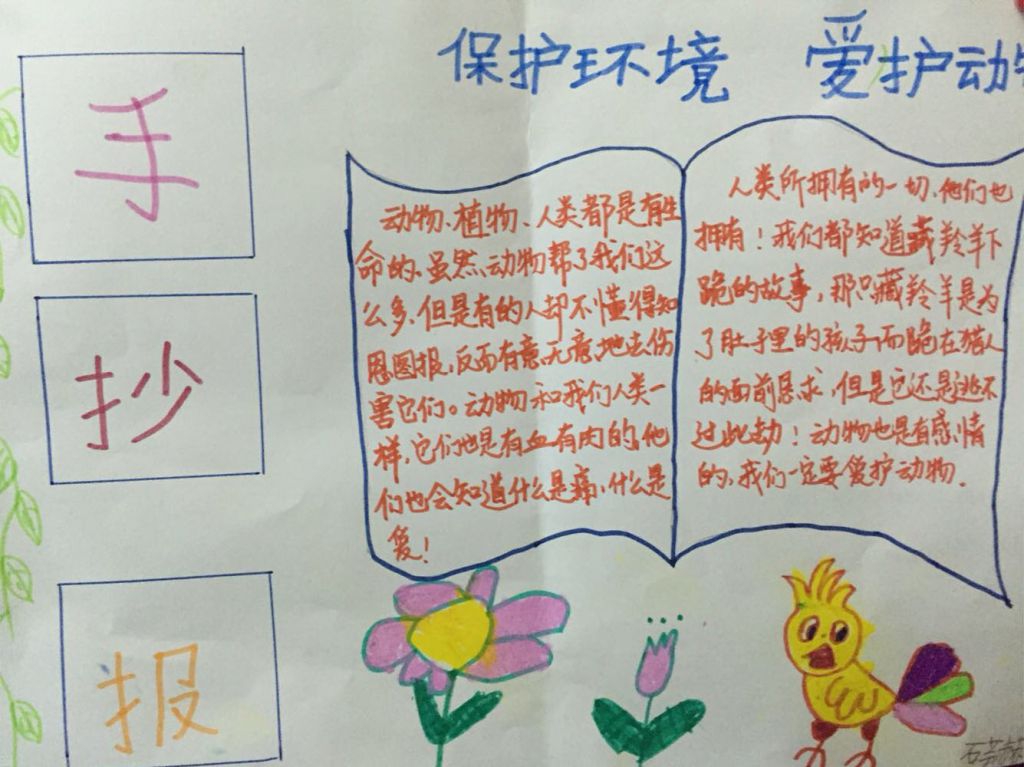 保护环境 爱护动
手
抄
报
动物、植物、人类都是有生
命的、虽然动物帮了我们这
么多、但是有的人却不懂得知
恩图报,反而有意无意地去伤
害它们。动物和我们人类一
样,它们也是有血有肉的,他
们也会知道什么是痛,什么是
爱!
人类所拥有的一切、他们也
拥有!我们都知道藏羚羊下
跪的故事,那只藏羚羊是为
了肚子里的孩子而跪在猎人
的面前恳求,但是它还是逃不
过此劫!动物也是有感情
的,我们一定要爱护动物.